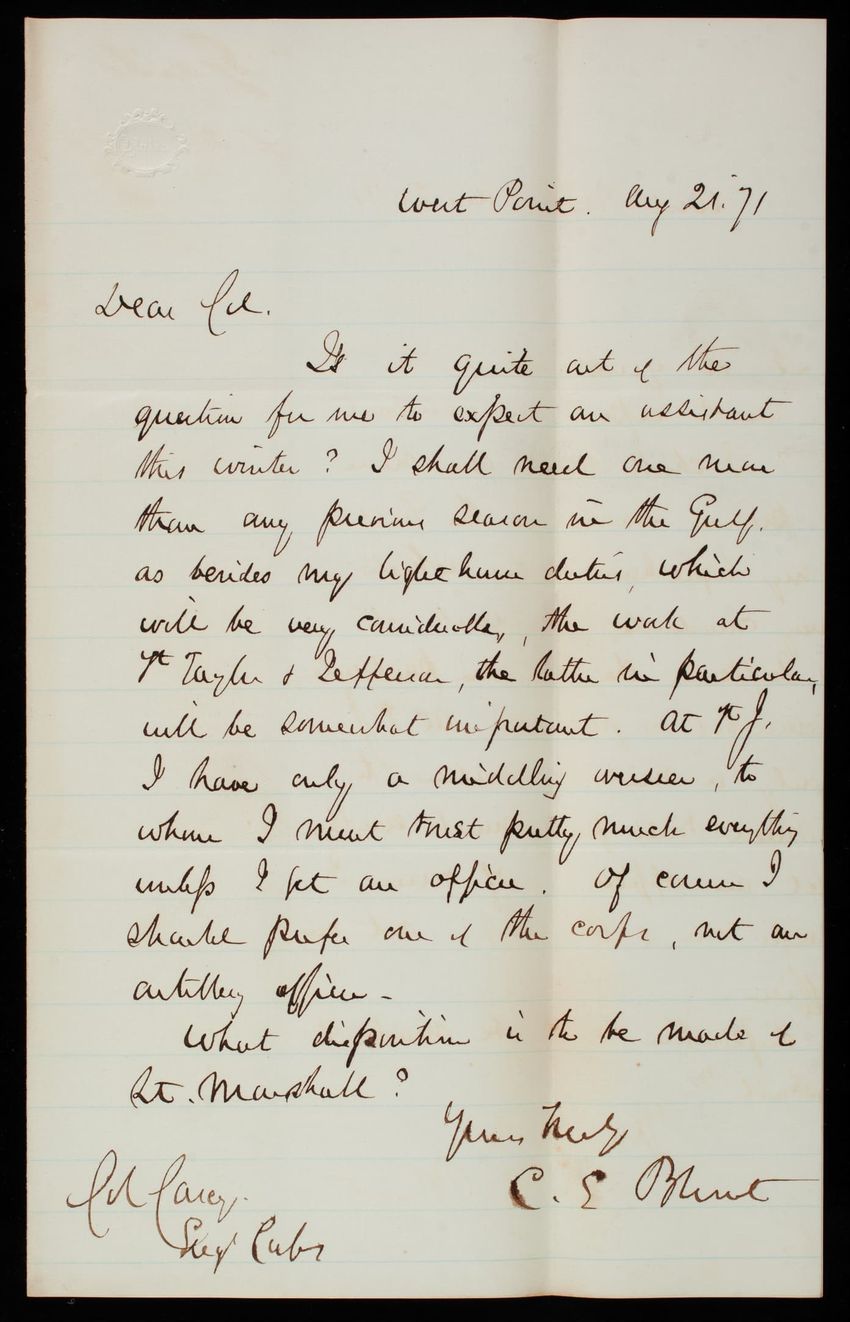 West Point. Aug 21. 71
Dear Col.
Is it quite out of the
question for me to expect an assistant
this winter? I shall need one more
than any previous season in the Gulf.
as besides my light house duties, which
will be very considerable, the work at
Ft Taylor & Jefferson, the latter in particular,
will be somewhat important. At Ft J.
I have only a middling overseer, to
whom I must trust pretty much everything
unless I get an officer. Of course I
should prefer one of the corps, not an
artillery officer -
What disposition is to be made of
Lt. Marshall?
Yours truly
C. E Blunt
Col Casey.
Engr Corps